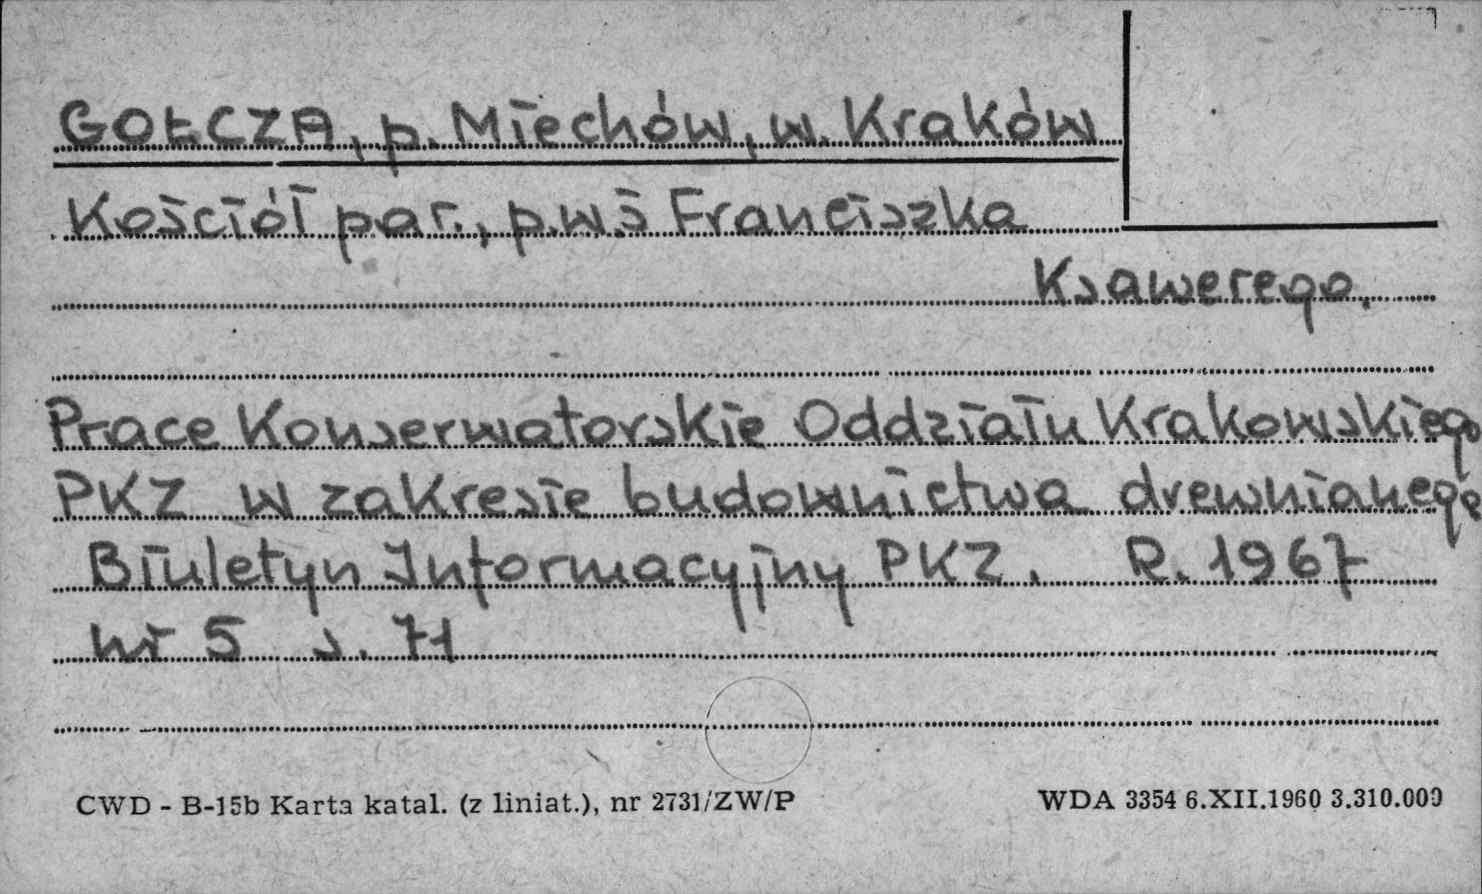 GOŁCZA, p. Miechów, w. Kraków
Kościół par., p.w.ś Franciszka
Ksawerego.
Prace Konserwatorskie Oddziału Krakowskiego
PKZ w zakresie budownictwa drewnianego
Biuletyn Informacyjny PKZ. R. 1967
nr 5 s. 71
CWD - B-15b Karta katal. (z liniat.), nr 2731/ZW/P
WDA 3354 6.XII.1960 3.310.000